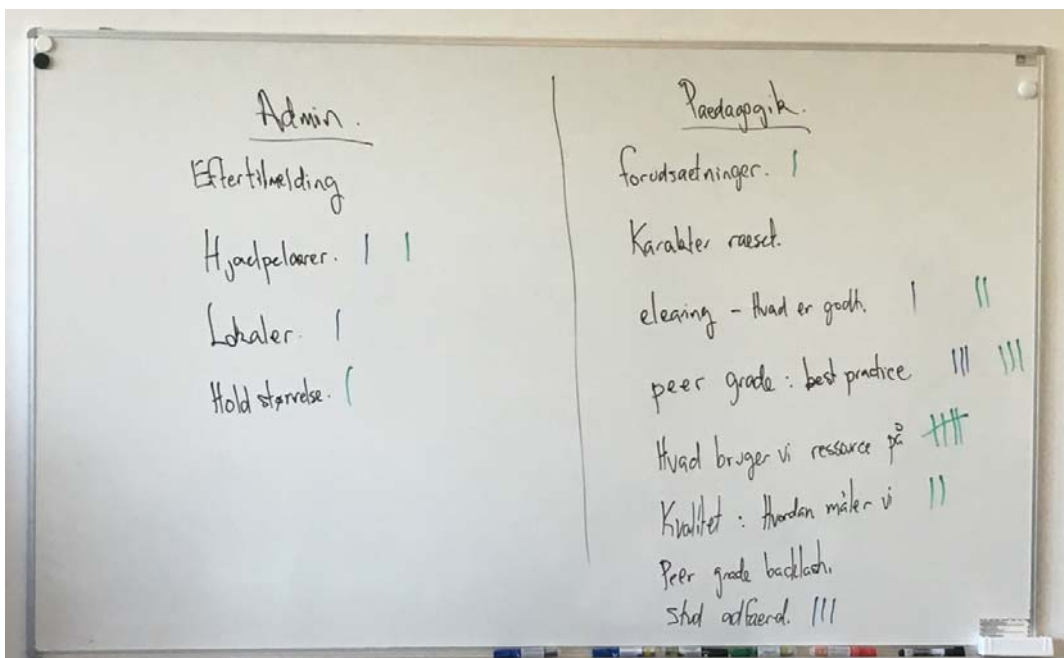 Admin.
Eftertilmelding
Hjaelpelaerer. | |
Lokaler. |
Hold størrelse. |
Paedagogik.
forudsaetninger. |
Karakter raeset.
elearing - Hvad er godt. | ||
peer grade : best practice ||| |||
Hvad bruger vi ressource på ||||
Kvalitet : Hvordan måler vi ||
Peer grade backlash.
stud adfaerd. |||